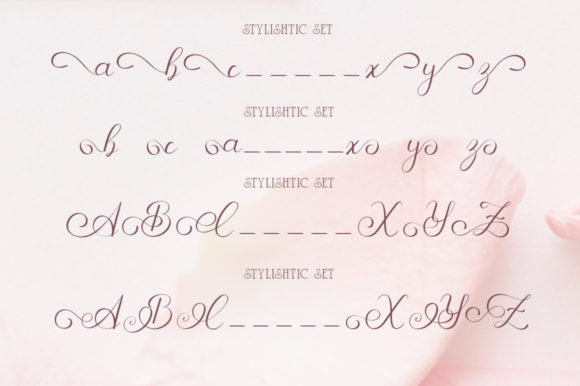 STYLISHTIC SET
a b c _ _ _ _ _ x y z
STYLISHTIC SET
b c a _ _ _ _ _ x y z
STYLISHTIC SET
A B C _ _ _ _ _ X Y Z
STYLISHTIC SET
A B C _ _ _ _ _ X Y Z